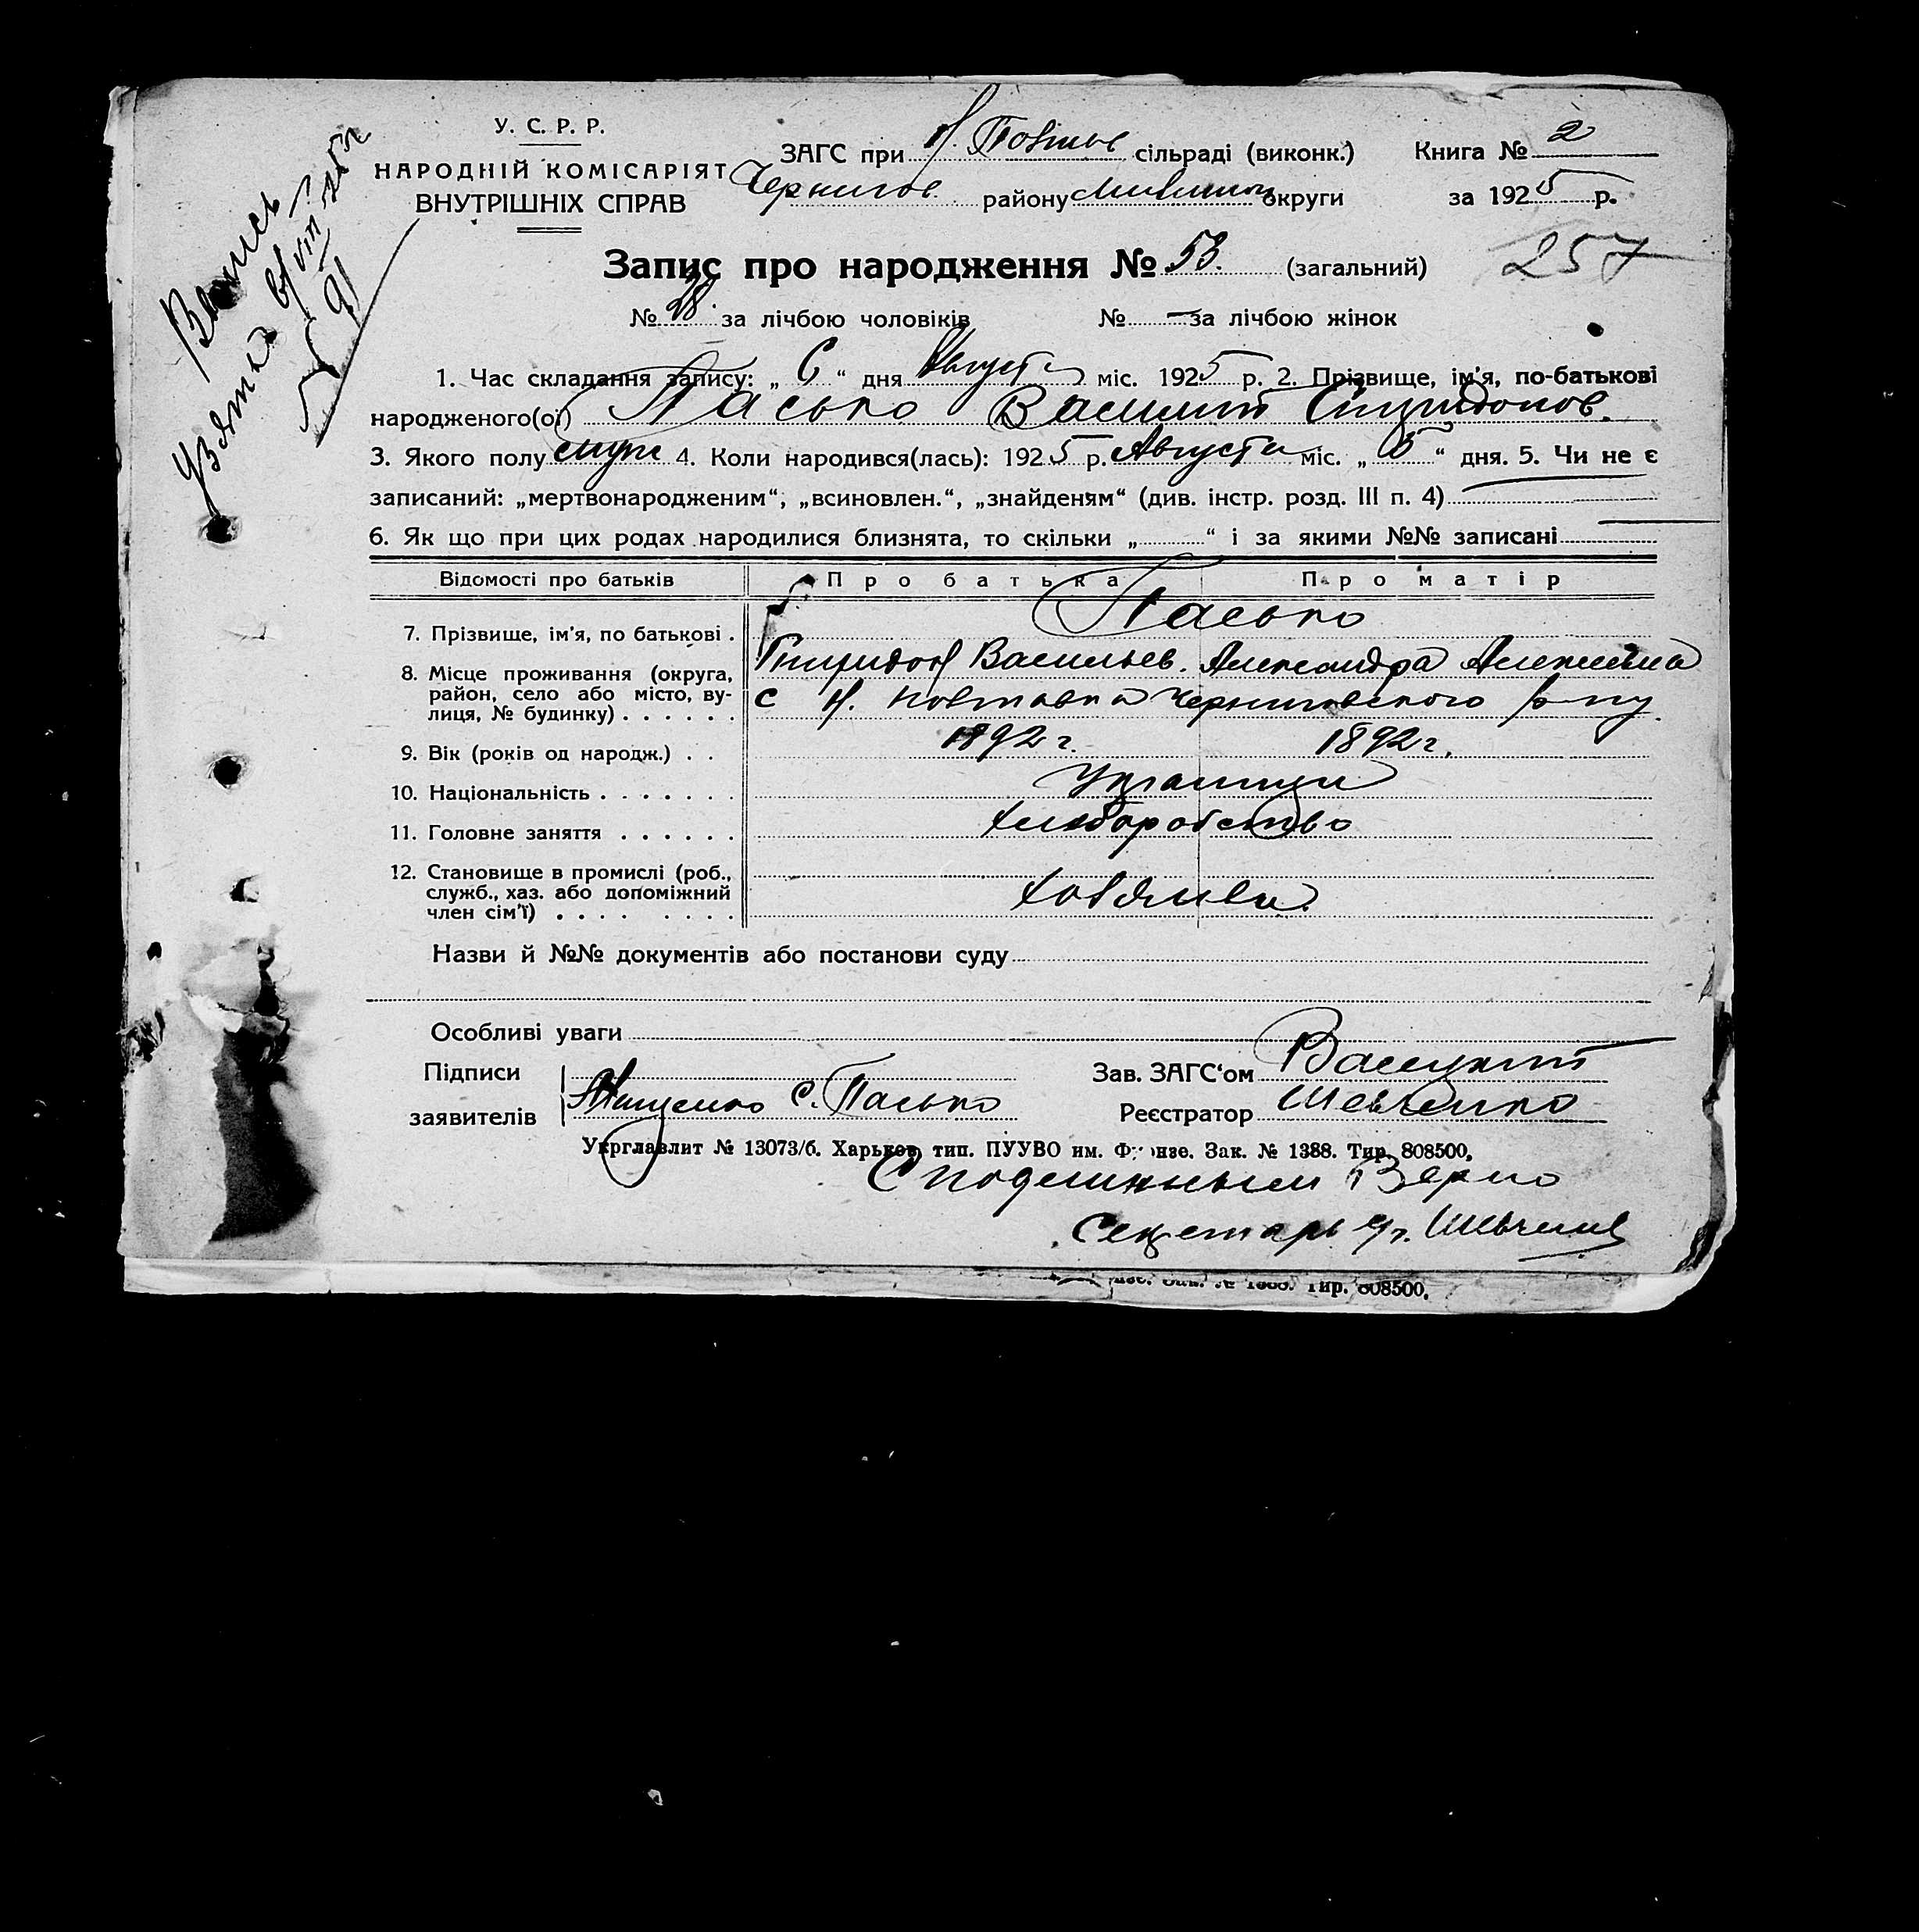 У. С. Р. Р.
НАРОДНІЙ КОМІСАРІЯТ
ВНУТРІШНІХ СПРАВ
ЗАГС при Н. Повтов сільраді (виконк.) Книга № 2
Чернигов. району округи за 1925 р.
Запис про народження № 53. (загальний) 257
№ 28. за лічбою чоловіків № — за лічбою жінок
1. Час складання запису: „ 6 “ дня Августа міс. 1925 р. 2. Прізвище, ім'я, по-батькові
народженого(ої) Пасько Василий Спиридонов.
3. Якого полу муж 4. Коли народився(лась): 1925 р. Августа міс. „ 5 “ дня. 5. Чи не є
записаний: „мертвонародженим“, „всиновлен.“, „знайденям“ (див. інстр. розд. III п. 4)
6. Як що при цих родах народилися близнята, то скільки „ “ і за якими №№ записані
Відомості про батьків Про батька Про матір
7. Прізвище, ім'я, по батькові . Пасько
Спиридон Васильев. Александра Алексеевна
8. Місце проживання (округа,
район, село або місто, ву-
лиця, № будинку) . . . . . . с Н. Повтовка Черниговского р-ну
9. Вік (років од народж.) . . 1892 г. 1892 г.
10. Національність . . . . . . . Украинцы
11. Головне заняття . . . . . . Хлеборобство
12. Становище в промислі (роб.,
служб., хаз. або допоміжний
член сім'ї) . . . . . . . . Хозяева
Назви й №№ документів або постанови суду
Особливі уваги
Підписи
заявителів С. Пасько
Зав. ЗАГС‘ом
Реєстратор Шевченко
Укрглавлит № 13073/б. Харьков, тип. ПУУВО им. Фрунзе. Зак. № 1388. Тир. 808500.
С подлинным Верно
Секретарь Шевченко
Тир. 808500.